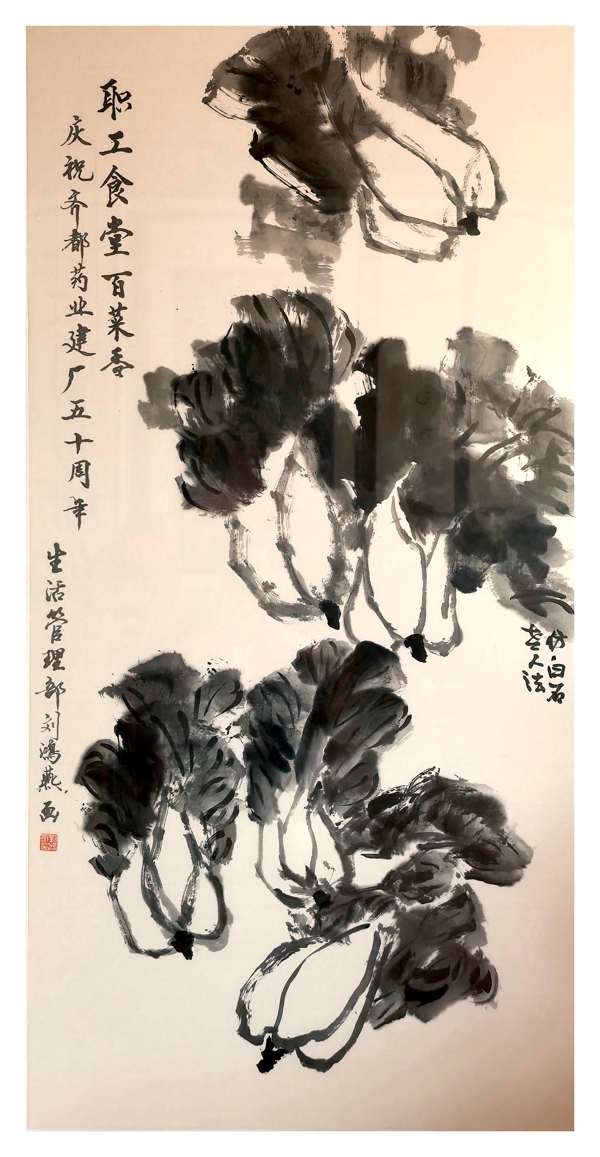 仿白石
老人法
职工食堂百菜香
庆祝齐都药业建厂五十周年
生活管理部刘鸿燕画